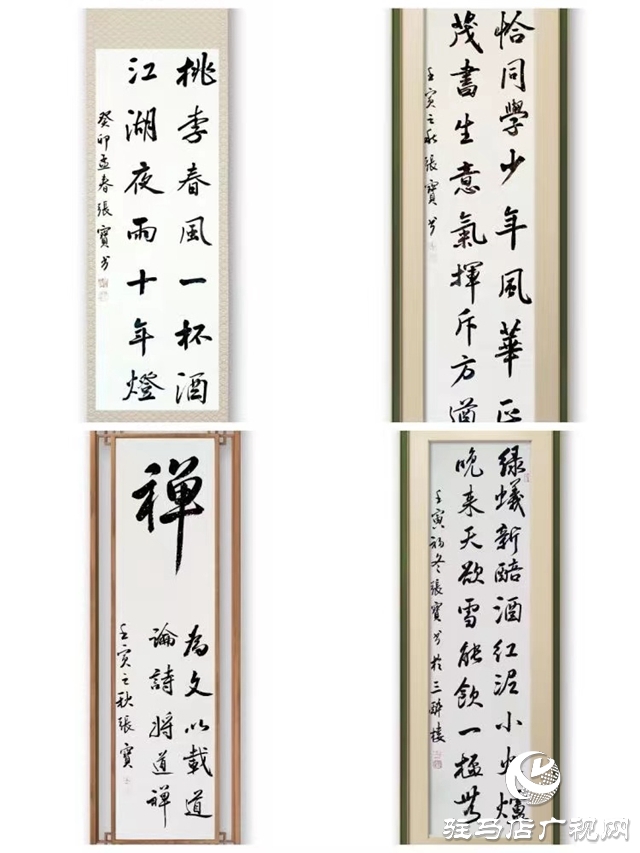 桃李春風一杯酒
江湖夜雨十年燈
癸卯孟春張寶书
恰同學少年風華正
茂書生意氣揮斥方遒
壬寅之秋張寶书
禅
為文以載道
論詩將道禅
壬寅之秋張寶
绿蟻新醅酒紅泥小火爐
晚来天欲雪能飲一杯無
壬寅初冬張寶书於三醉樓
驻马店广视网